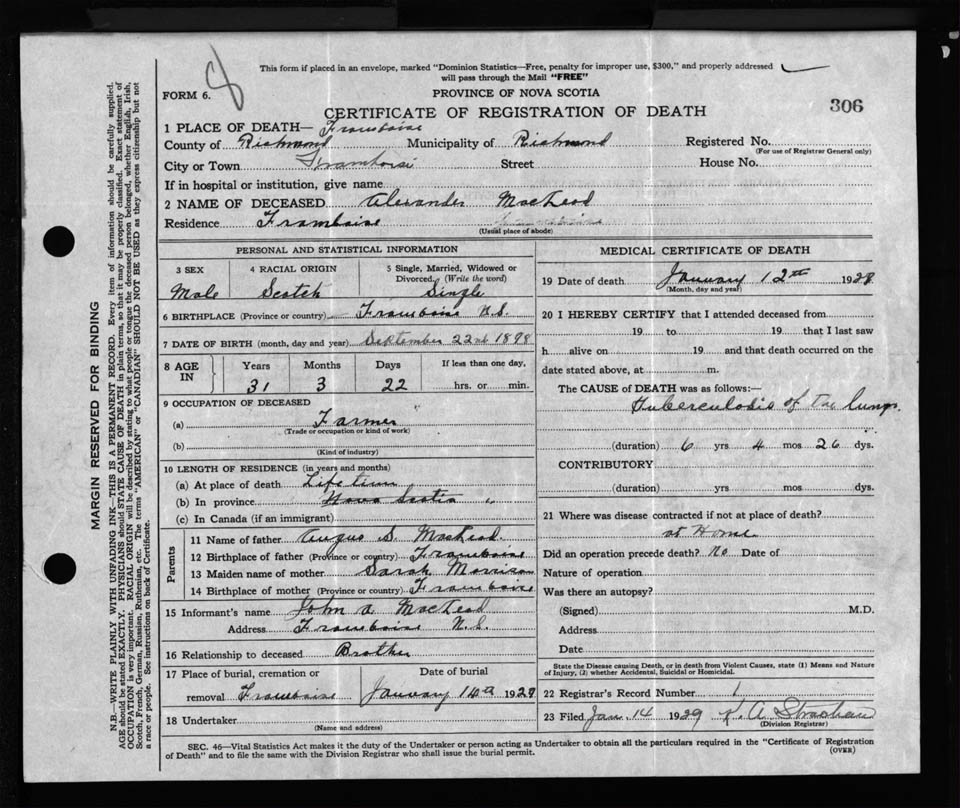 This form if placed in an envelope, marked "Dominion Statistics—Free, penalty for improper use, $300," and properly addressed
will pass through the Mail "FREE"
FORM 6.
PROVINCE OF NOVA SCOTIA
CERTIFICATE OF REGISTRATION OF DEATH
306
1 PLACE OF DEATH— Framboise
County of Richmond Municipality of Richmond Registered No.
(For use of Registrar General only)
City or Town Framboise Street House No.
If in hospital or institution, give name
2 NAME OF DECEASED Alexander MacLeod
Residence Framboise
(Usual place of abode)
PERSONAL AND STATISTICAL INFORMATION
3 SEX 4 RACIAL ORIGIN 5 Single, Married, Widowed or
Divorced. (Write the word)
Male Scotch Single
6 BIRTHPLACE (Province or country) Framboise N.S.
7 DATE OF BIRTH (month, day and year) September 22nd 1898
8 AGE IN Years Months Days If less than one day,
31 3 22 hrs. or min.
9 OCCUPATION OF DECEASED
(a) Farmer
(Trade or occupation or kind of work)
(b)
(Kind of industry)
10 LENGTH OF RESIDENCE (in years and months)
(a) At place of death Life time
(b) In province Nova Scotia "
(c) In Canada (if an immigrant)
Parents
11 Name of father Angus S. MacLeod
12 Birthplace of father (Province or country) Framboise
13 Maiden name of mother Sarah Morrison
14 Birthplace of mother (Province or country) Framboise
15 Informant's name John A MacLeod
Address Framboise N.S.
16 Relationship to deceased Brother
17 Place of burial, cremation or Date of burial
removal Framboise January 14th 1929
18 Undertaker
(Name and address)
MEDICAL CERTIFICATE OF DEATH
19 Date of death January 12th
(Month, day and year)
20 I HEREBY CERTIFY that I attended deceased from
19 to 19 that I last saw
h alive on 19 and that death occurred on the
date stated above, at m.
The CAUSE of DEATH was as follows:—
Tuberculosis of the lungs.
(duration) 6 yrs 4 mos 26 dys.
CONTRIBUTORY
(duration) yrs. mos dys.
21 Where was disease contracted if not at place of death?
at Home
Did an operation precede death? No Date of
Nature of operation
Was there an autopsy?
(Signed) M.D.
Address
Date
State the Disease causing Death, or in death from Violent Causes, state (1) Means and Nature
of Injury, (2) whether Accidental, Suicidal or Homicidal.
22 Registrar's Record Number 1
23 Filed Jan. 14 1929 K. A. Strachan
(Division Registrar)
SEC. 46—Vital Statistics Act makes it the duty of the Undertaker or person acting as Undertaker to obtain all the particulars required in the "Certificate of Registration
of Death" and to file the same with the Division Registrar who shall issue the burial permit.
(OVER)
MARGIN RESERVED FOR BINDING
N.B.—WRITE PLAINLY WITH UNFADING INK—THIS IS A PERMANENT RECORD. Every item of information should be carefully supplied.
AGE should be stated EXACTLY. PHYSICIANS should STATE CAUSE OF DEATH in plain terms, so that it may be properly classified. Exact statement of
OCCUPATION is very important. RACIAL ORIGIN will be described by stating to what people or tongue the deceased person belonged, whether English, Irish,
Scotch, French, German, Russian, Ruthenian, etc. The terms "AMERICAN" or "CANADIAN" SHOULD NOT BE USED as they express citizenship but not
a race or people. See instructions on back of Certificate.